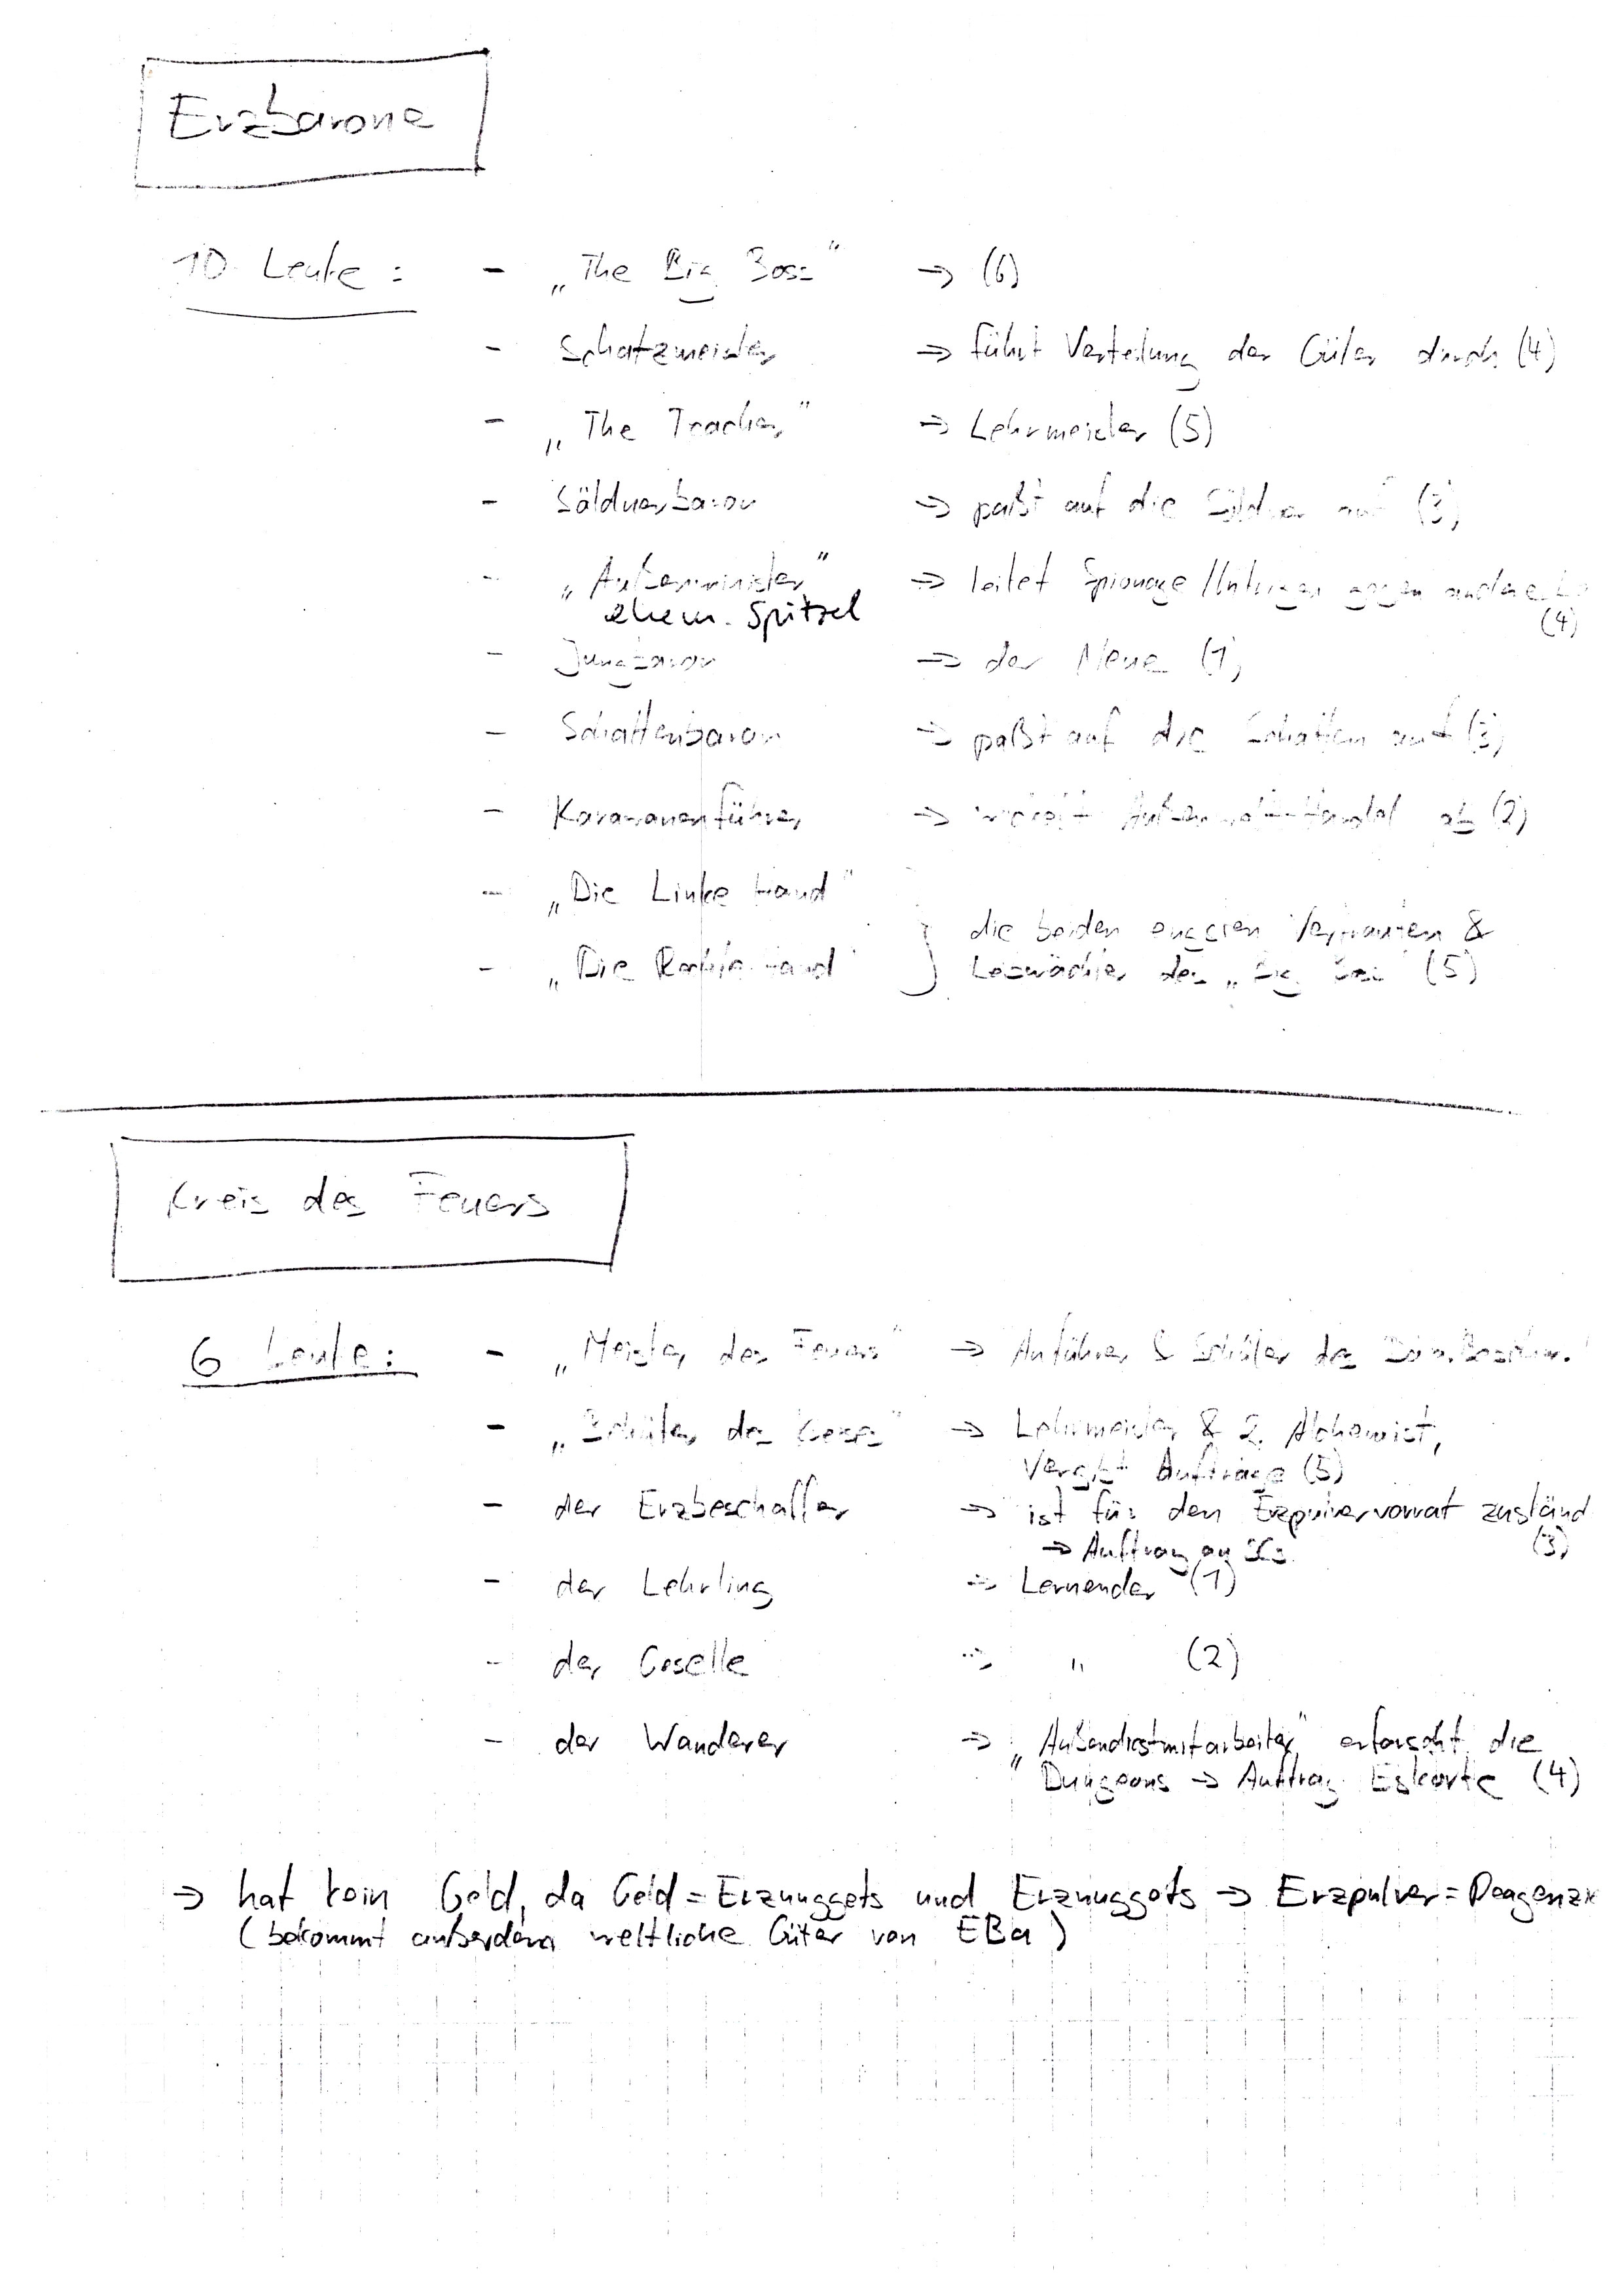 Erzbarone
10 Leute: - „The Big Boss" → (6)
- Schatzmeister → führt Verteilung der Güter durch (4)
- „The Teacher" → Lehrmeister (5)
- Söldnerbaron → paßt auf die Söldner auf (3)
- „Außenminister" → leitet Spionage/Intrigen gegen andere
ehem. Spitzel (4)
- Jungbaron → der Neue (1)
- Schattenbaron → paßt auf die Schatten auf (3)
- Karawanenführer → ab (2)
- „Die Linke Hand"
- „Die Rechte Hand" } die beiden engsten Vertrauten &
Leibwächter des „Big Boss" (5)
Kreis des Feuers
6 Leute: - „Meister des Feuers" → Anführer & Schüler des
- „Schüler des → Lehrmeister & 2. Alchemist,
vergibt Aufträge (5)
- der Erzbeschaffer → ist für den Erzpulvervorrat zuständ
→ Auftrag an (3)
- der Lehrling → Lernender (1)
- der Geselle → " (2)
- der Wanderer → „Außendienstmitarbeiter" erforscht die
Dungeons → Auftrag Eskorte (4)
→ hat kein Geld, da Geld = Erznuggets und Erznuggets → Erzpulver = Reagenzi
(bekommt außerdem weltliche Güter von EBa)